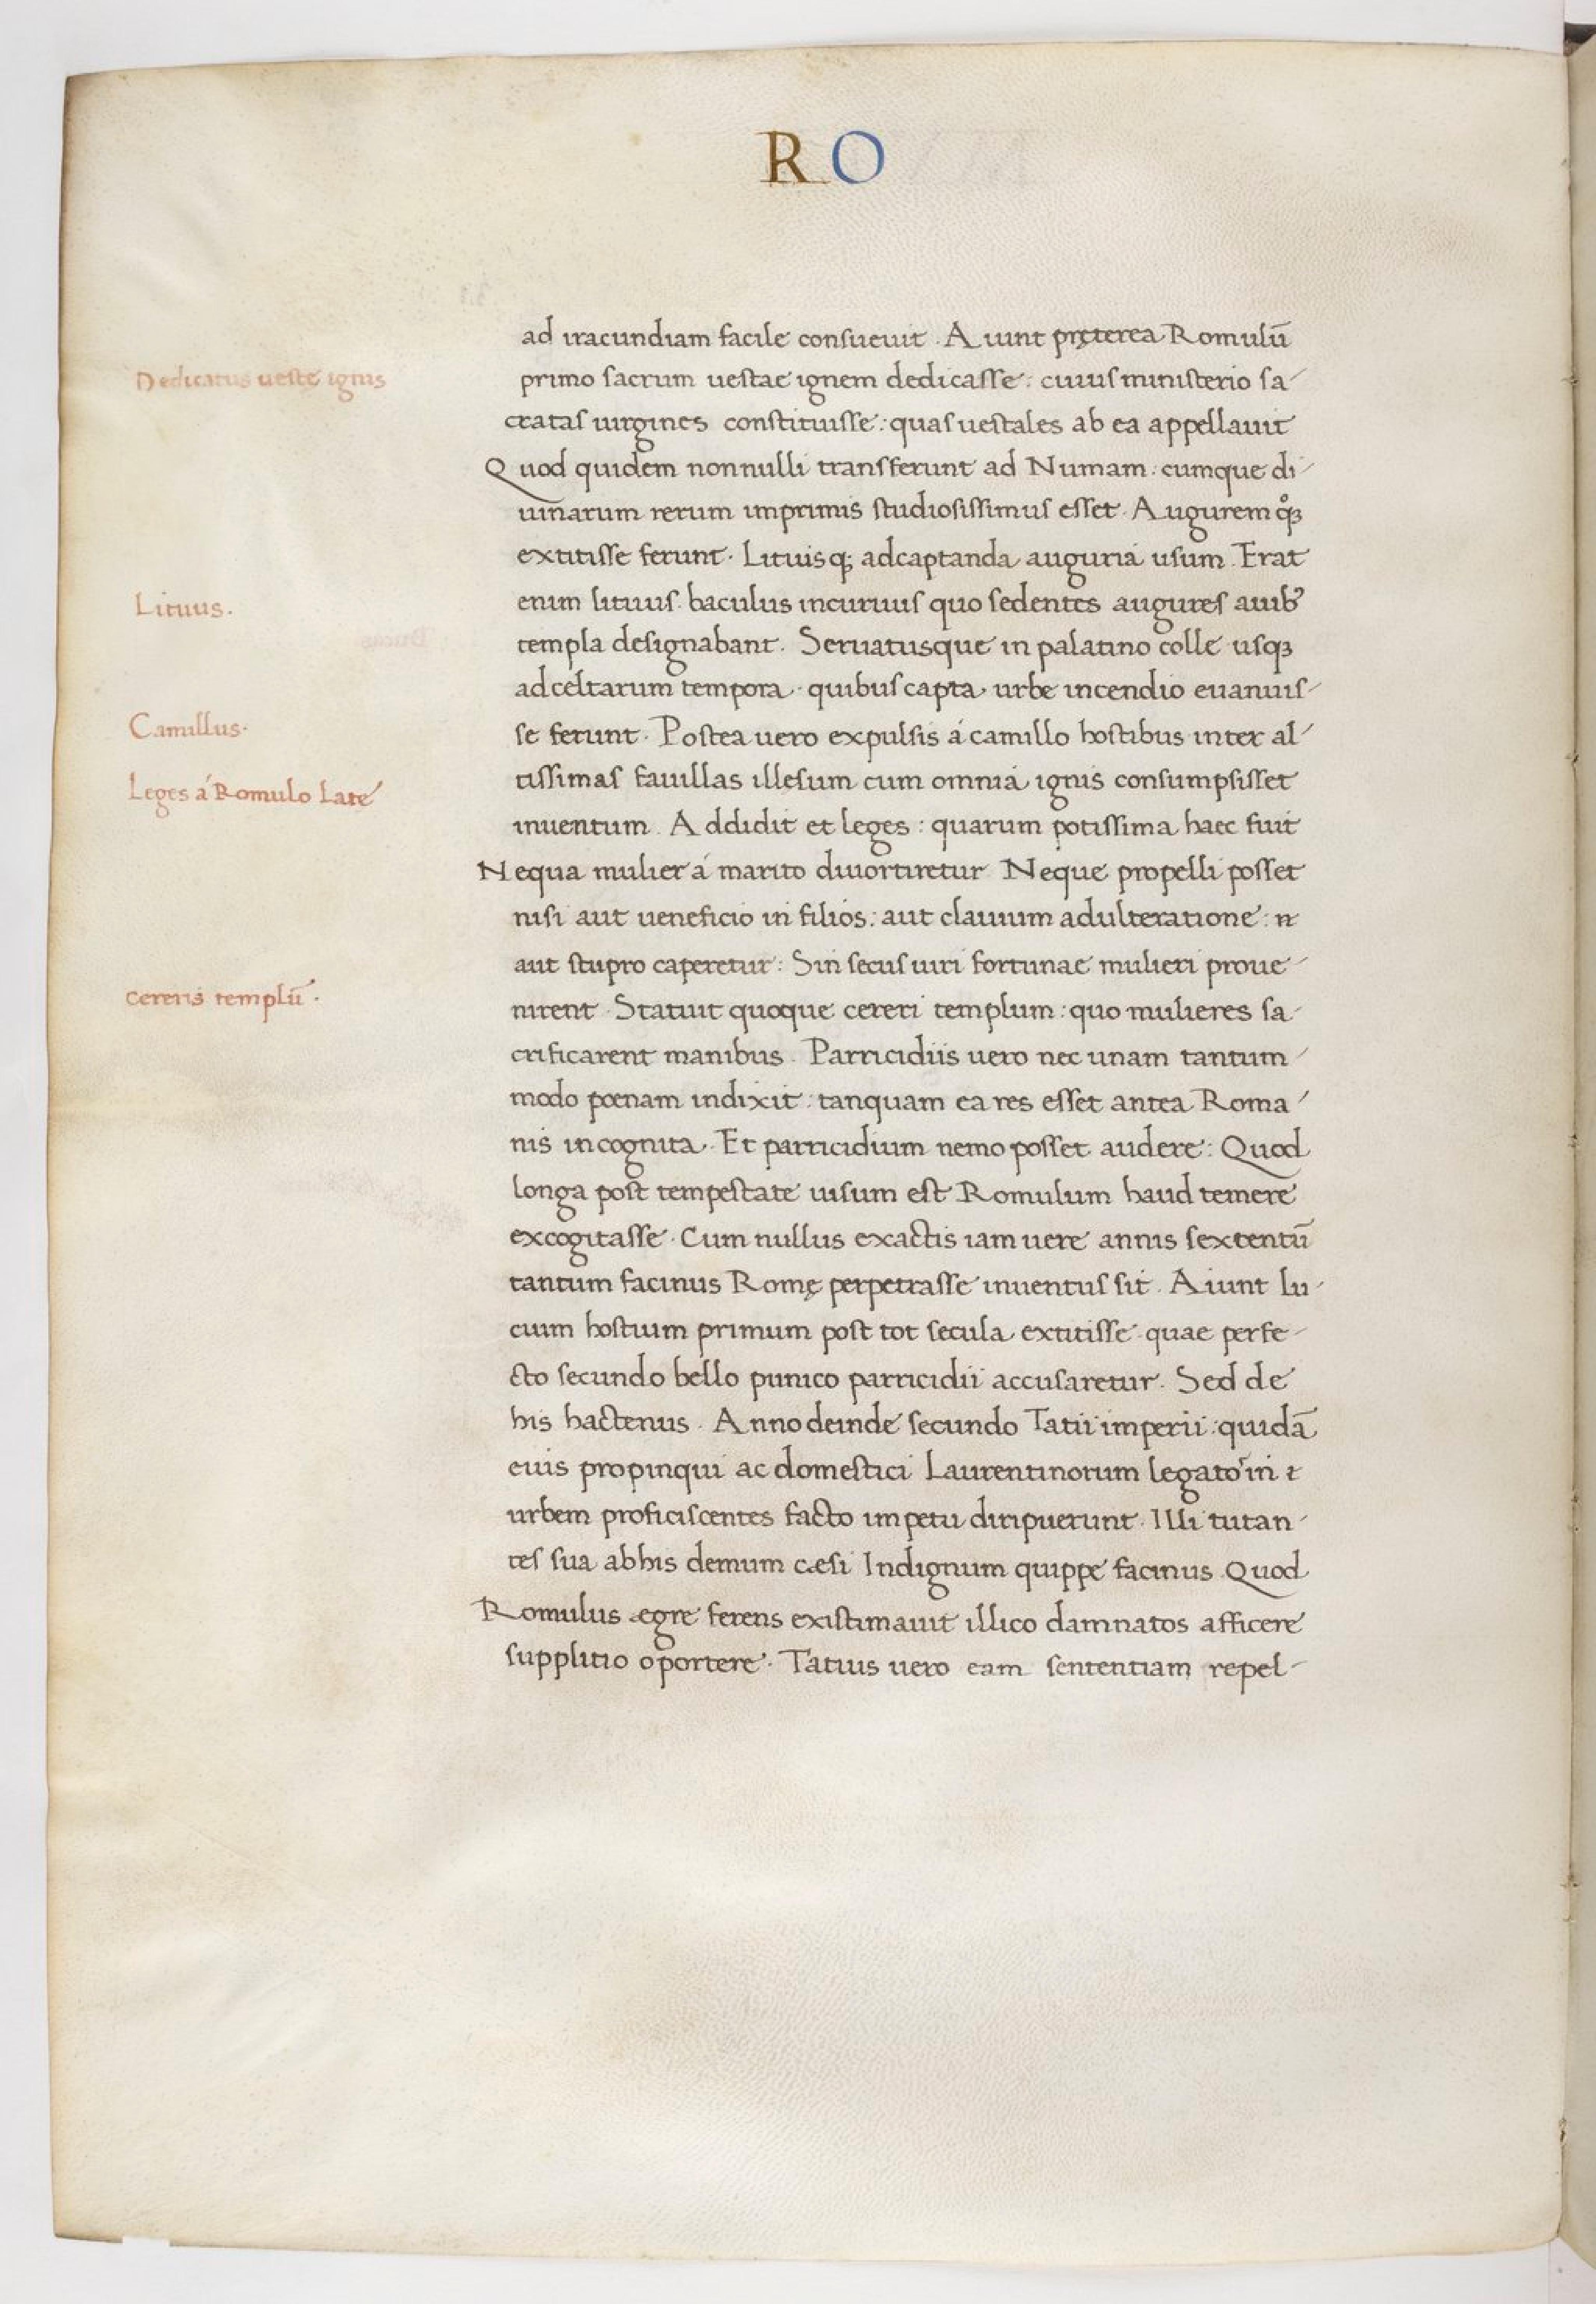 RO
ad iracundiam facile consueuit. Aiunt pręterea Romulū
Dedicatus ueste ignis
primo sacrum uestae ignem dedicasse: cuius ministerio sa-
cratas uirgines constituisse: quas uestales ab ea appellauit
Quod quidem nonnulli transferunt ad Numam: cumque di-
uinarum rerum imprimis studiosissimus esset. Augurem qȝ
extitisse ferunt. Lituisq; ad captanda auguria usum. Erat
Lituus.
enim lituus baculus incuruus quo sedentes augures auibꝰ
templa designabant. Seruatusque in palatino colle usqȝ
ad celtarum tempora quibus capta urbe incendio euanuis-
Camillus.
se ferunt. Postea uero expulsis á camillo hostibus inter al-
Leges á Romulo late
tissimas fauillas illesum cum omnia ignis consumpsisset
inuentum. Addidit et leges: quarum potissima haec fuit
Nequa mulier á marito diuortiretur Neque propelli posset
nisi aut ueneficio in filios: aut clauium adulteratione:
aut stupro caperetur: Sin secus uiri fortunae mulieri proue-
Cereris templū.
nirent Statuit quoque cereri templum: quo mulieres sa-
crificarent manibus. Parricidiis uero nec unam tantum-
modo poenam indixit: tanquam ea res esset antea Roma-
nis incognita. Et parricidium nemo posset audere: Quod
longa post tempestate uisum est Romulum haud temere
excogitasse. Cum nullus exactis iam uere annis sexcentū
tantum facinus Romę perpetrasse inuentus sit. Aiunt lu-
cium hostium primum post tot secula extitisse quae perfe-
cto secundo bello punico parricidii accusaretur. Sed de
his hactenus. Anno deinde secundo Tatii imperii: quidā
eius propinqui ac domestici Laurentinorum legatoꝰ in
urbem proficiscentes facto impetu diripuerunt. Illi tutan-
tes sua ab his demum cæsi Indignum quippe facinus. Quod
Romulus ægre ferens existimauit illico damnatos afficere
supplitio oportere. Tatius uero eam sententiam repel-